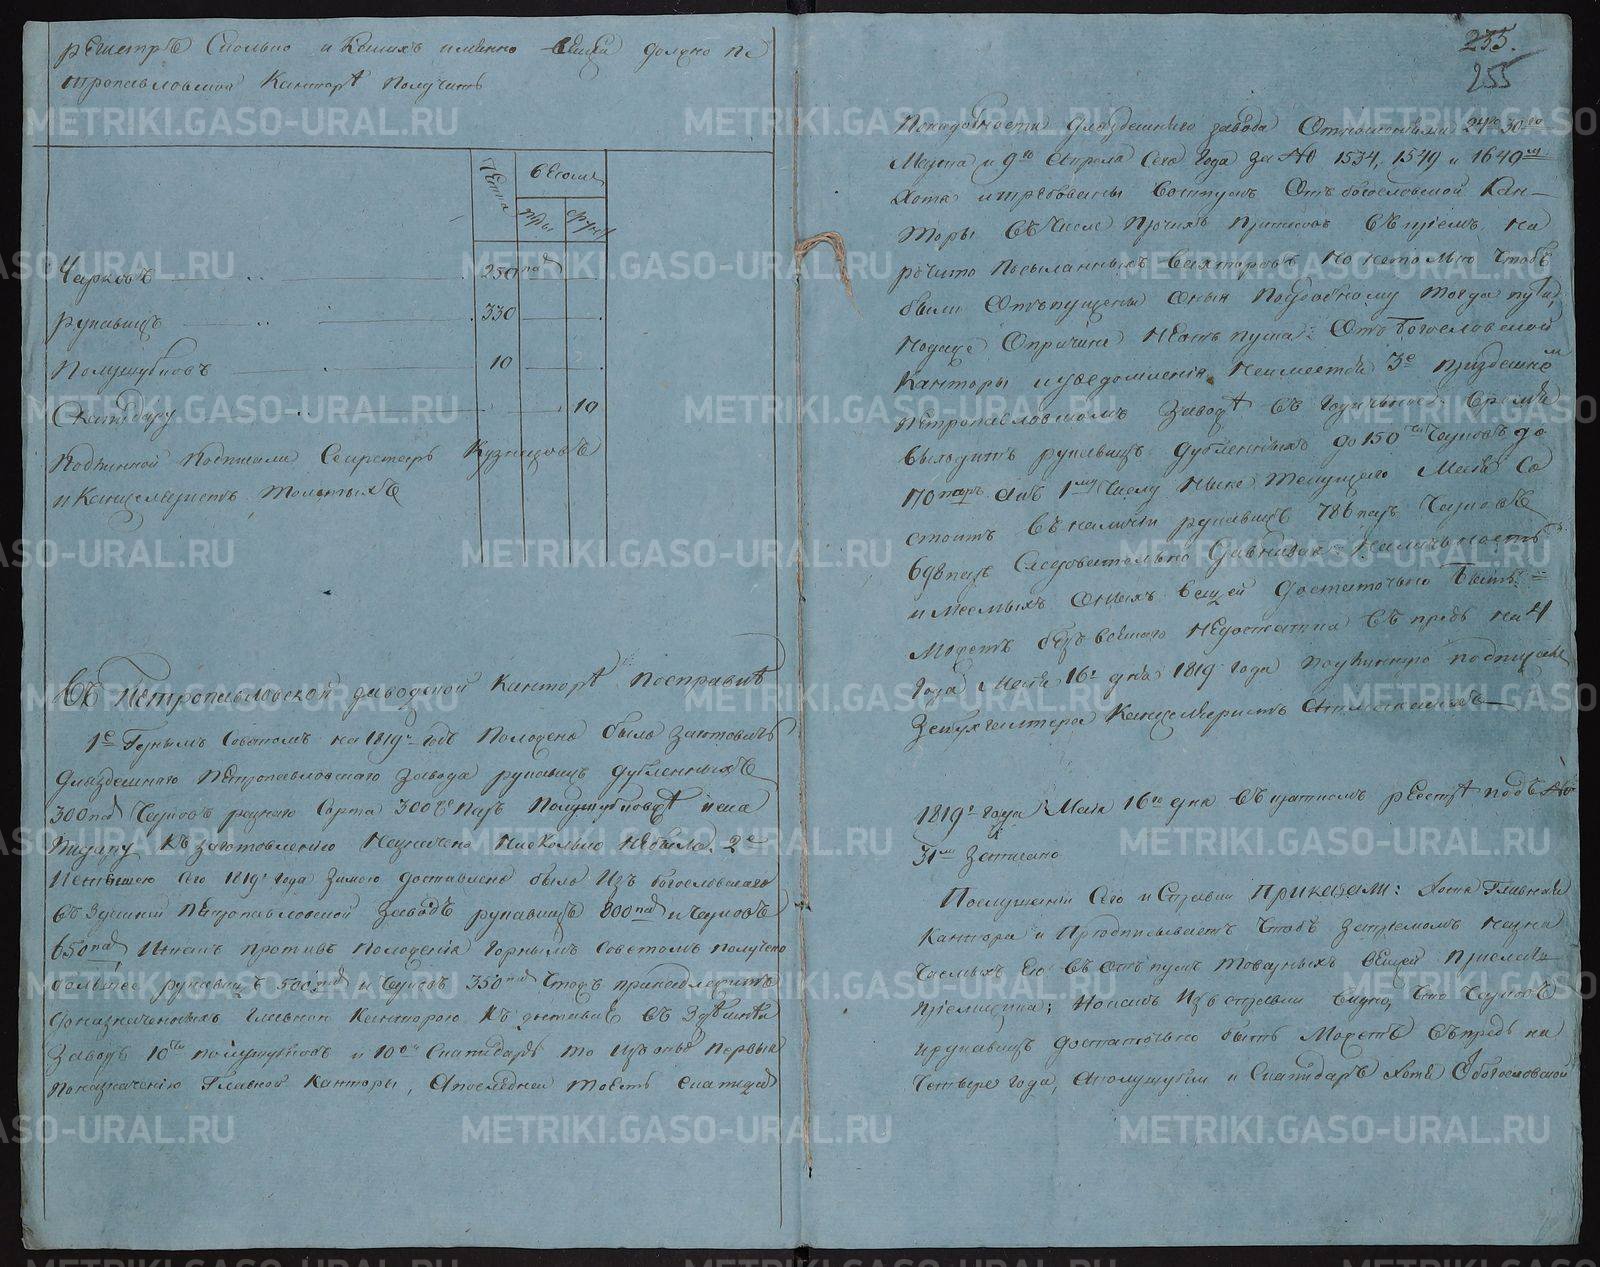 регистръ Сколько и Какихъ имянно вещей должно Пе
тропавловской Канторѣ Получить
чета
весомъ
пуды
фунт
Чарковъ 250 паръ
рукавицъ 330
Полушубковъ 10
Скипидару 10
Подлинной Подписали Секретарь Кузнецовъ
и Канцеляристъ Толстыхъ
Въ Петропавловской заводской Канторѣ Посправкѣ
1е Горнымъ Советомъ на 1819й годъ Положено было Заготовить
Дляздешняго Петропавловскаго завода рукавицъ дубленныхъ
300 па Чарковъ разнаго Сорта 300 паръ Полушубковъ и Ски
пидару Къ заготовлению Назначено Нисколько Небыло. 2е
сего 1819 года Зимою доставлено было Изъ богословскаго
въ Здешней Петропавловской заводъ рукавицъ 800 па и Чарковъ
650 па Инакъ противъ Положения Горнымъ Советомъ получено
более рукавицъ 500 па и Чарковъ 350 па Чтожъ принадлежитъ
доназначенныхъ Главною Канторою Къ доставке въ Здешней
Заводъ 10ти полушубковъ и 10 Скипидара то первыя
Поназначению Главной Канторы, Апоследней тоесть Скипидаръ
235.
255
Понадобности Дляздешняго завода Отношениями 24го 30го
Марта и 9го Апреля Сего Года за № 1534, 1549 и 1640мъ
Хотя итребованы Отъ богословской Кан-
торы Въ Числе Прочихъ Припасовъ Въприемъ На
рочито Посыланныхъ Но нетолько Чтобъ
были Отъпущены Оныя Поудобному Тогда пути,
Кодаже Опричине Неотъпуска Отъ Богословской
Канторы иуведомления Неимеется 3е Приздешнемъ
Петропавловскомъ Заводѣ Въ Годичное Время
Выходитъ рукавицъ дубленныхъ до 150 Чарковъ до
170 паръ Акъ 1му Числу Ныне Текущего Мая Со
стоитъ Въ наличии рукавицъ 786 паръ Чарковъ
698 паръ Следовательно Наличностъ
имеемыхъ Оныхъ вещей Достаточно Быть
Можетъ безъ всякаго Недостатка Въ предь на 4
Года Маия 16е дня 1819 Года Подлинную подписалъ
Забухгалтера Канцеляристъ
1819го Года Маия 16го дня Въ Кратномъ реестрѣ подъ №
31мъ Записано
Послушании Сего и Справки Приказали: Хотя Главная
Кантора и Предписываетъ Чтобъ Заприемомъ Назна
чаемыхъ Ею Въ Отъпускъ Товарныхъ Вещей Прислать
Приемщика; Нокакъ Изъ справки Видно, Что Чарковъ
ирукавицъ достаточно быть Можетъ Въпредь на
Четыре года, Аполушубки и Скипидаръ Хотя Отъбогословской